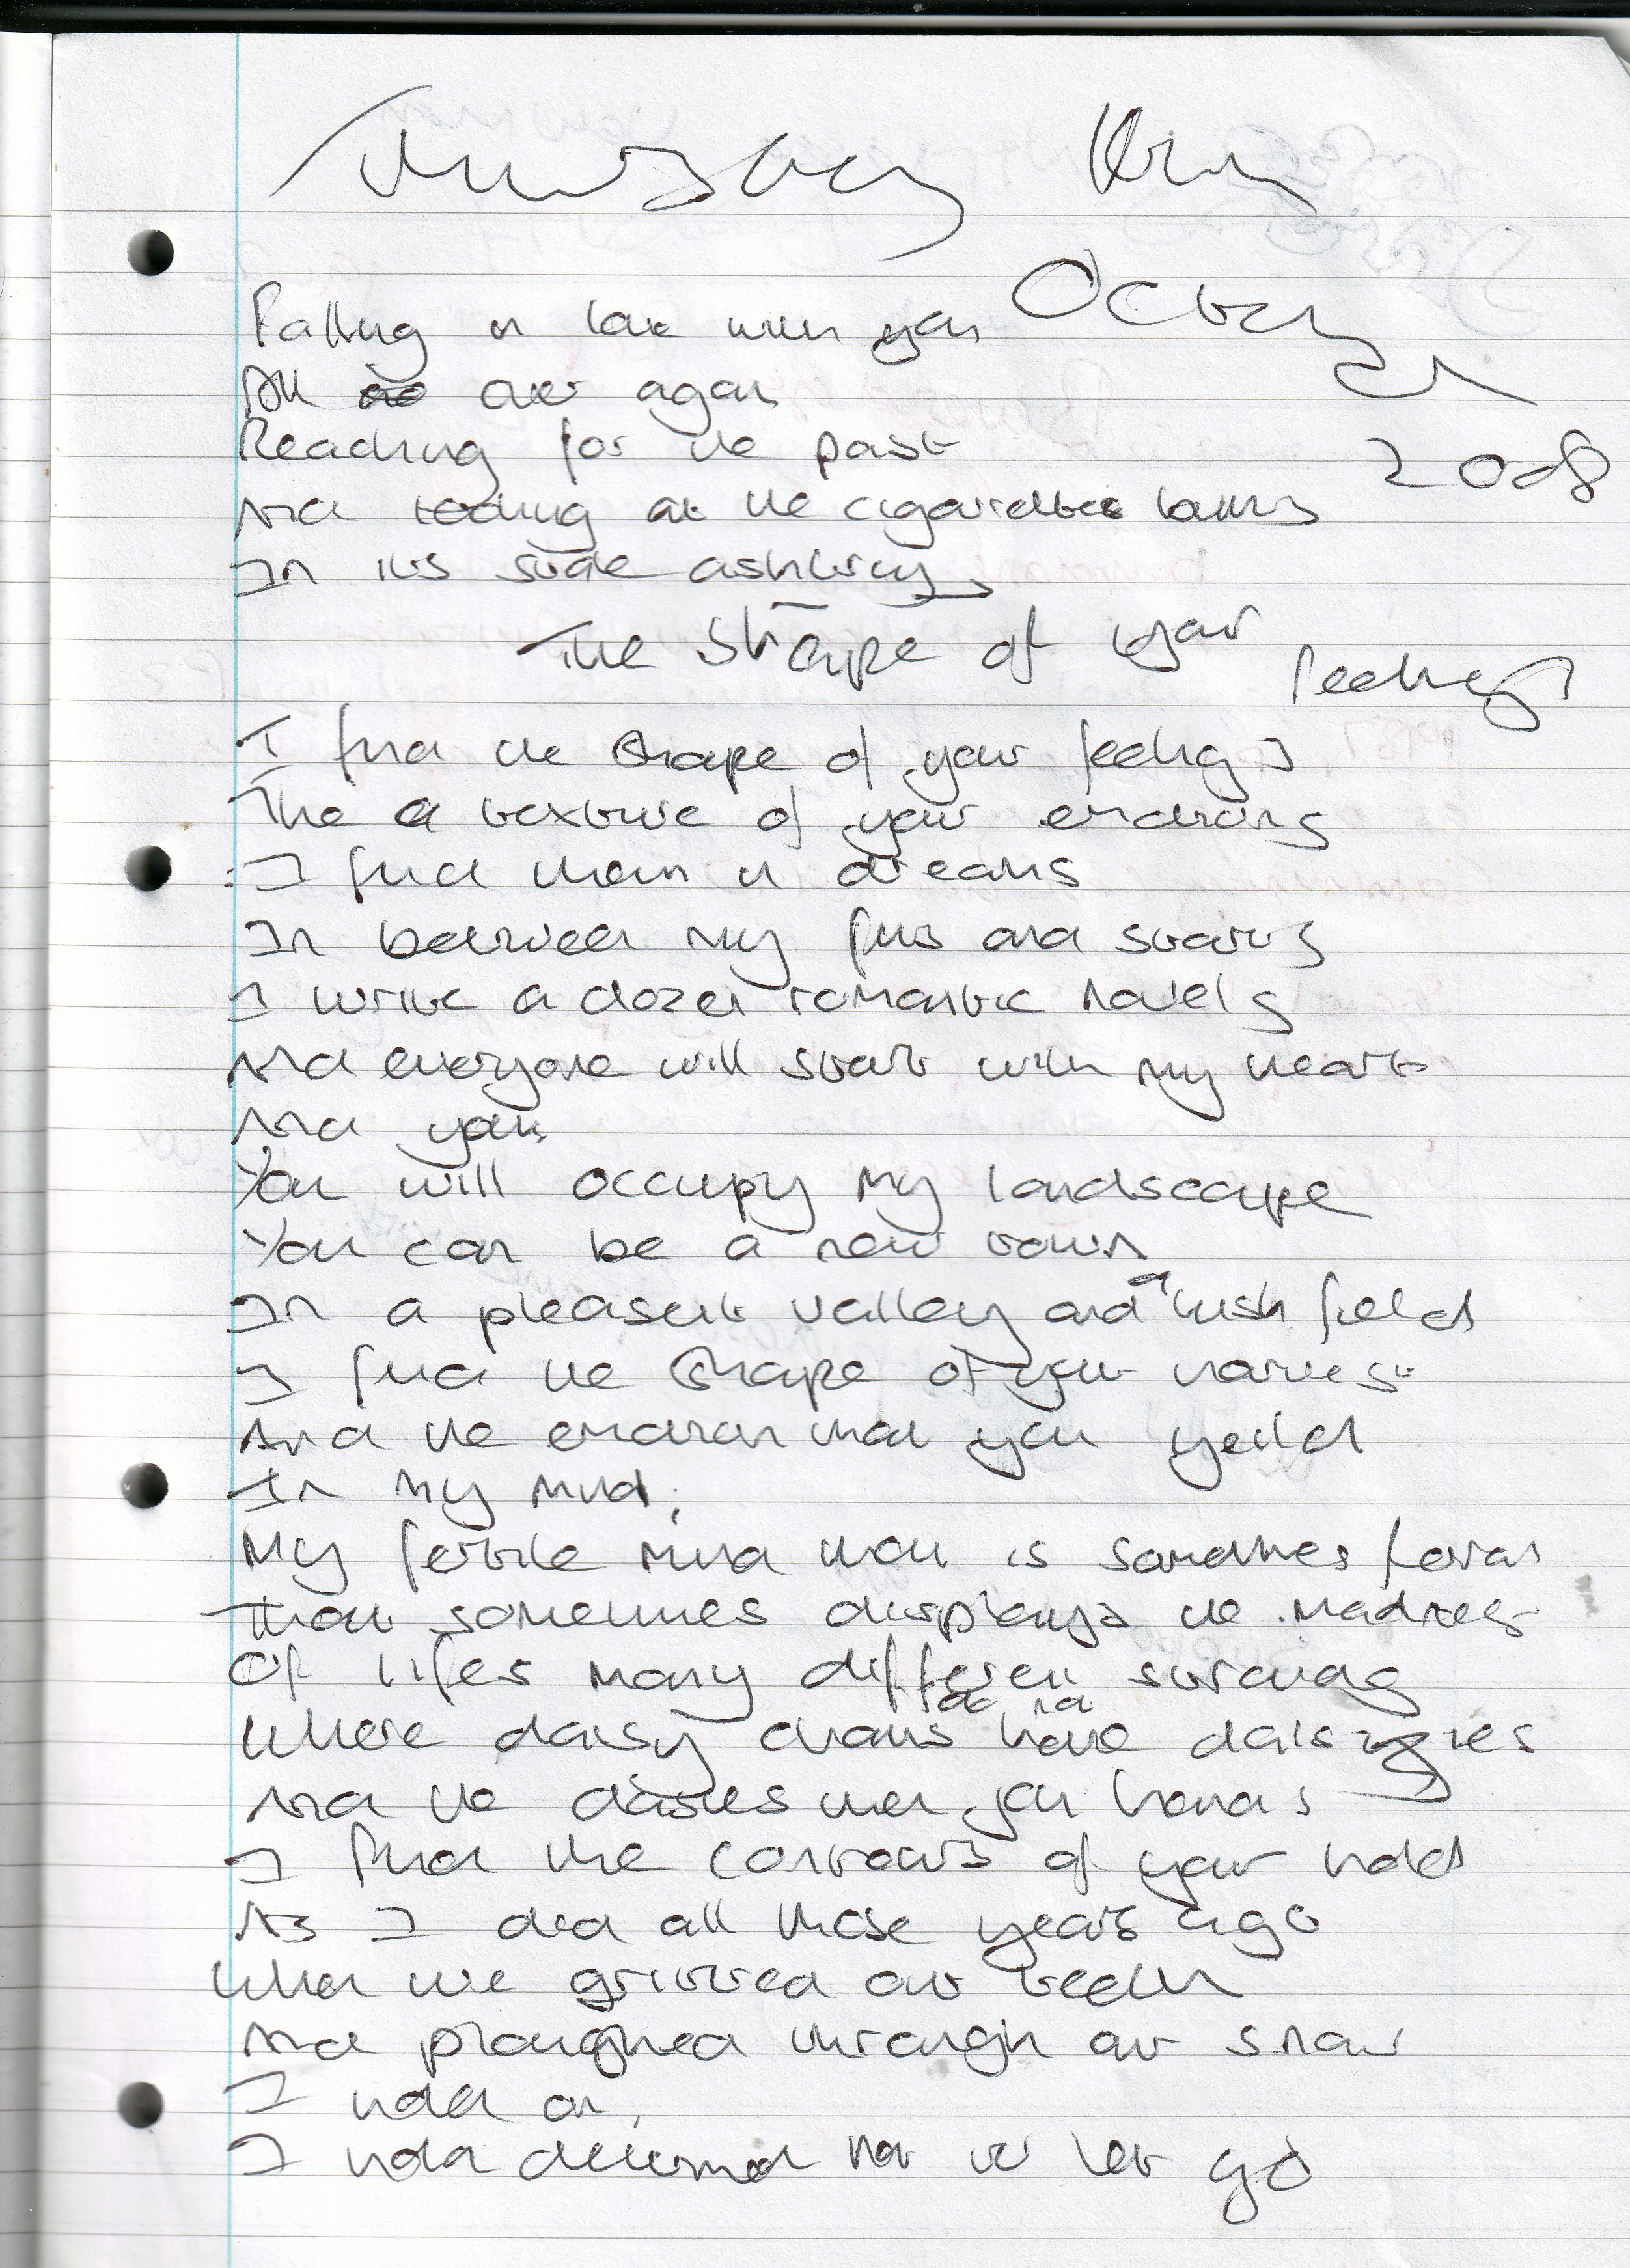 Thursday
October
2008
Falling in love with you
All over again
Reaching for the past
And looking at the cigarettes
In its stale ashtray,
The Shape of your feelings
I find the shape of your feelings
The texture of your emotions
I find them in dreams
In between my fits and starts
I write a dozen romantic novels
And everyone will start with my heart
And you,
You will occupy my landscape
You can be a new town
In a pleasent valley and a lush field
I find the shape of your harvest
And the emotion that you yeild
In my mind,
My fertile mind that is sometimes
That sometimes displays the madness
Of lifes many different
Where daisy chains have no daisies
And the daisies then you
I find the contours of your hold
As I did all those years ago
When we gritted our teeth
And ploughed through our snow
I hold on,
I hold determined not to let go